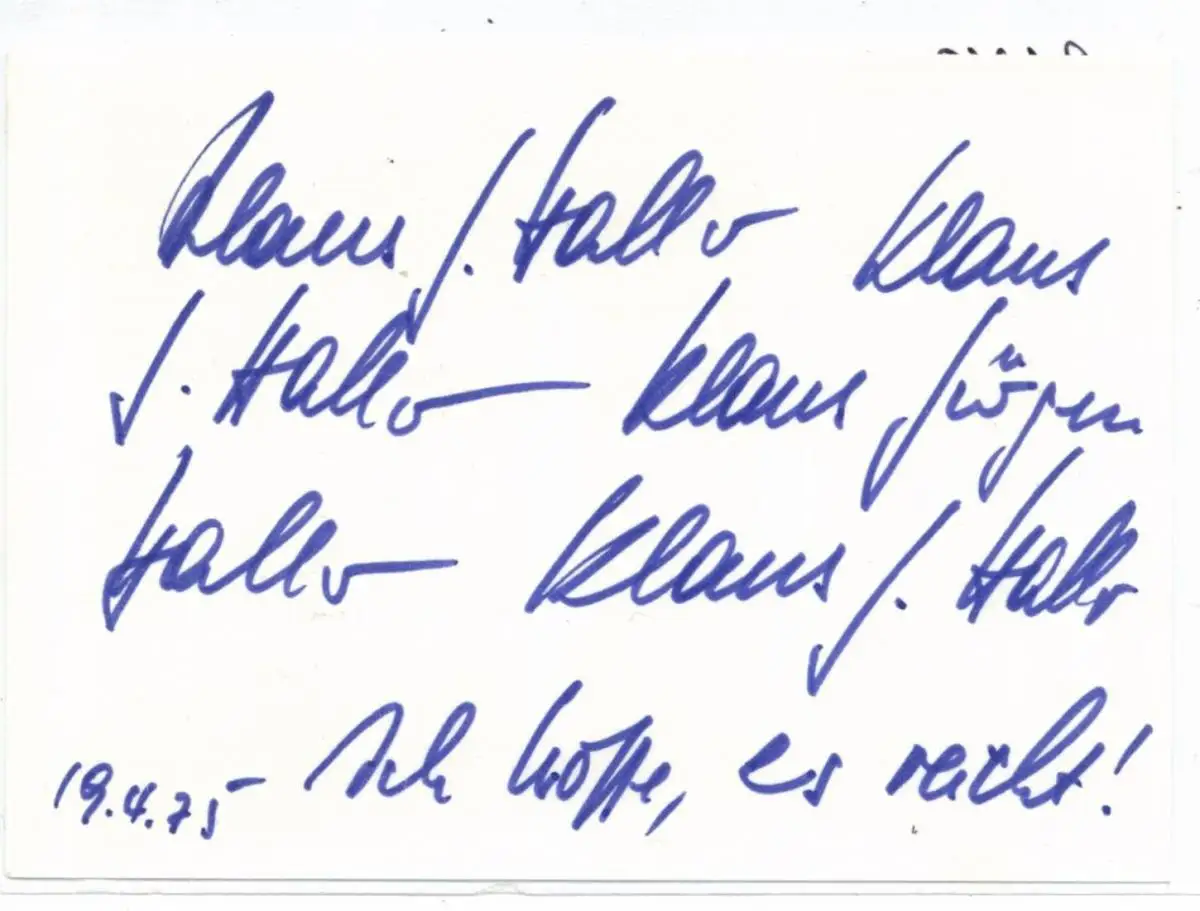 Klaus J. Hallo Klaus
J. Hallo Klaus Jürgen
Hallo Klaus J. Hallo
19.4.75 - Ich hoffe, es reicht!